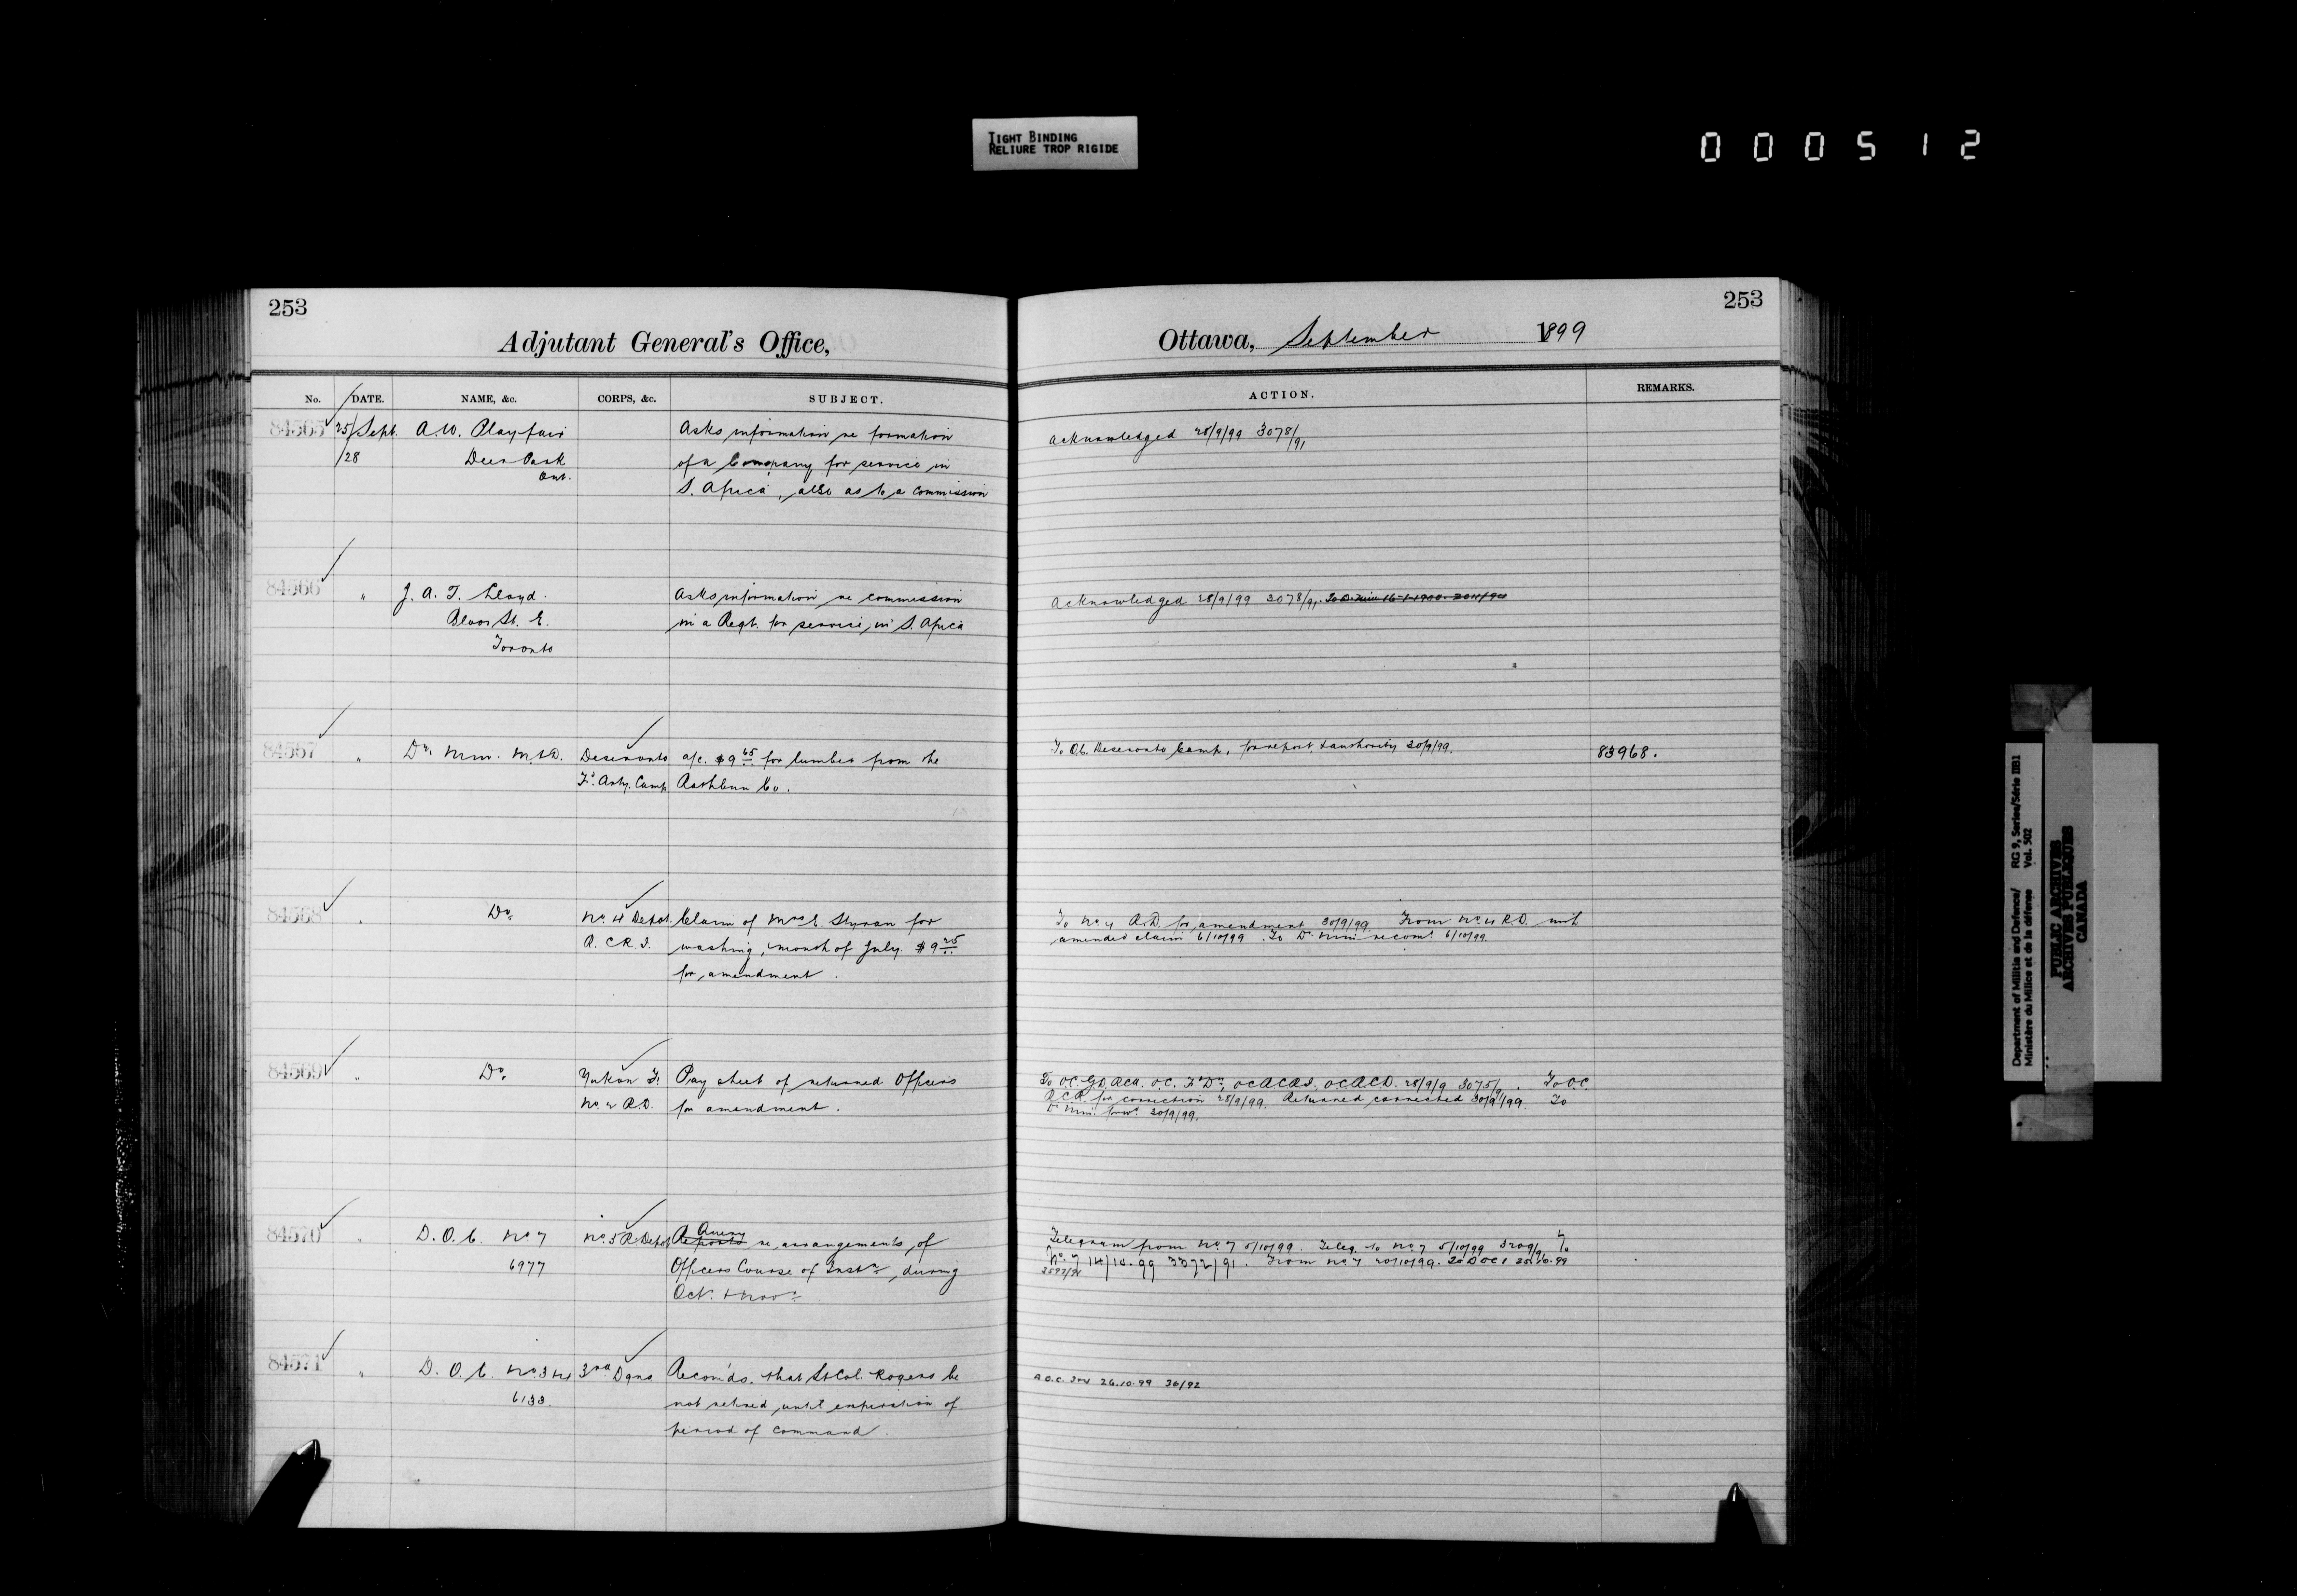 TIGHT BINDING
RELIURE TROP RIGIDE
000512
253
Adjutant General's Office,
No. DATE. NAME, &c. CORPS, &c. SUBJECT.
84565 25/Sept. A.W. Playfair Asks information re formation
/28 Deer Park of a Company for service in
Ont. S. Africa, also as to a commission
84566 " J. A. T. Lloyd. Asks information re commission
Bloor St. E. in a Regt. for service in S. Africa
Toronto
84567 " Dr. Min. M.&D. Deseronto a/c. $9 65 for lumber from the
Fd. Arty. Camp Rathbun Co.
84568 " Do. No. 4 Depot. Claim of Mrs E. for
R.C.R.I. washing, month of July $9 25
for amendment.
84569 " Do. Yukon F. Pay sheet of returned Officers
No. 2 R.D. for amendment.
84570 " D.O.C. No 7 No. 5 R. Depot Reports Query re arrangements, of
6977 Officers Course of Instn, during
Oct. & Nov.
84571 " D.O.C. No. 3 & 4 3rd Dgns Recom'ds. that Lt Col. Rogers be
6133. not retired until expiration of
period of command.
253
Ottawa, September 1899
ACTION. REMARKS.
Acknowledged 28/9/99 3078/91
Acknowledged 28/9/99 3078/91.
To O.C. Deseronto Camp, for report & authority 30/9/99. 83968.
To No. 4 R.D. for amendment 30/9/99 From No. 4 R.D. with
amended claim 6/10/99 To D. Min recomd. 6/10/99.
To O.C. G.D. RCA. O.C. Fd Do, OC RCRI, OC RCD. 28/9/9 3075/91. To O.C.
RCR for correction 28/9/99. Returned corrected 30/9/99. To
D. Min. forwd. 30/9/99.
Telegram from No. 7 5/10/99. Teleg. to No. 7 5/10/99 3209/91 To
No. 7 14/10.99 3372/91. From No 7 20/10/99. To DOC 5 25.10.99
3597/91
D.O.C. 3&4 26.10.99 36/92
Department of Militia and Defence/ RG 9, Series/Série IIB1
Ministère du Milice et de la défense Vol. 502
PUBLIC ARCHIVES
ARCHIVES PUBLIQUES
CANADA